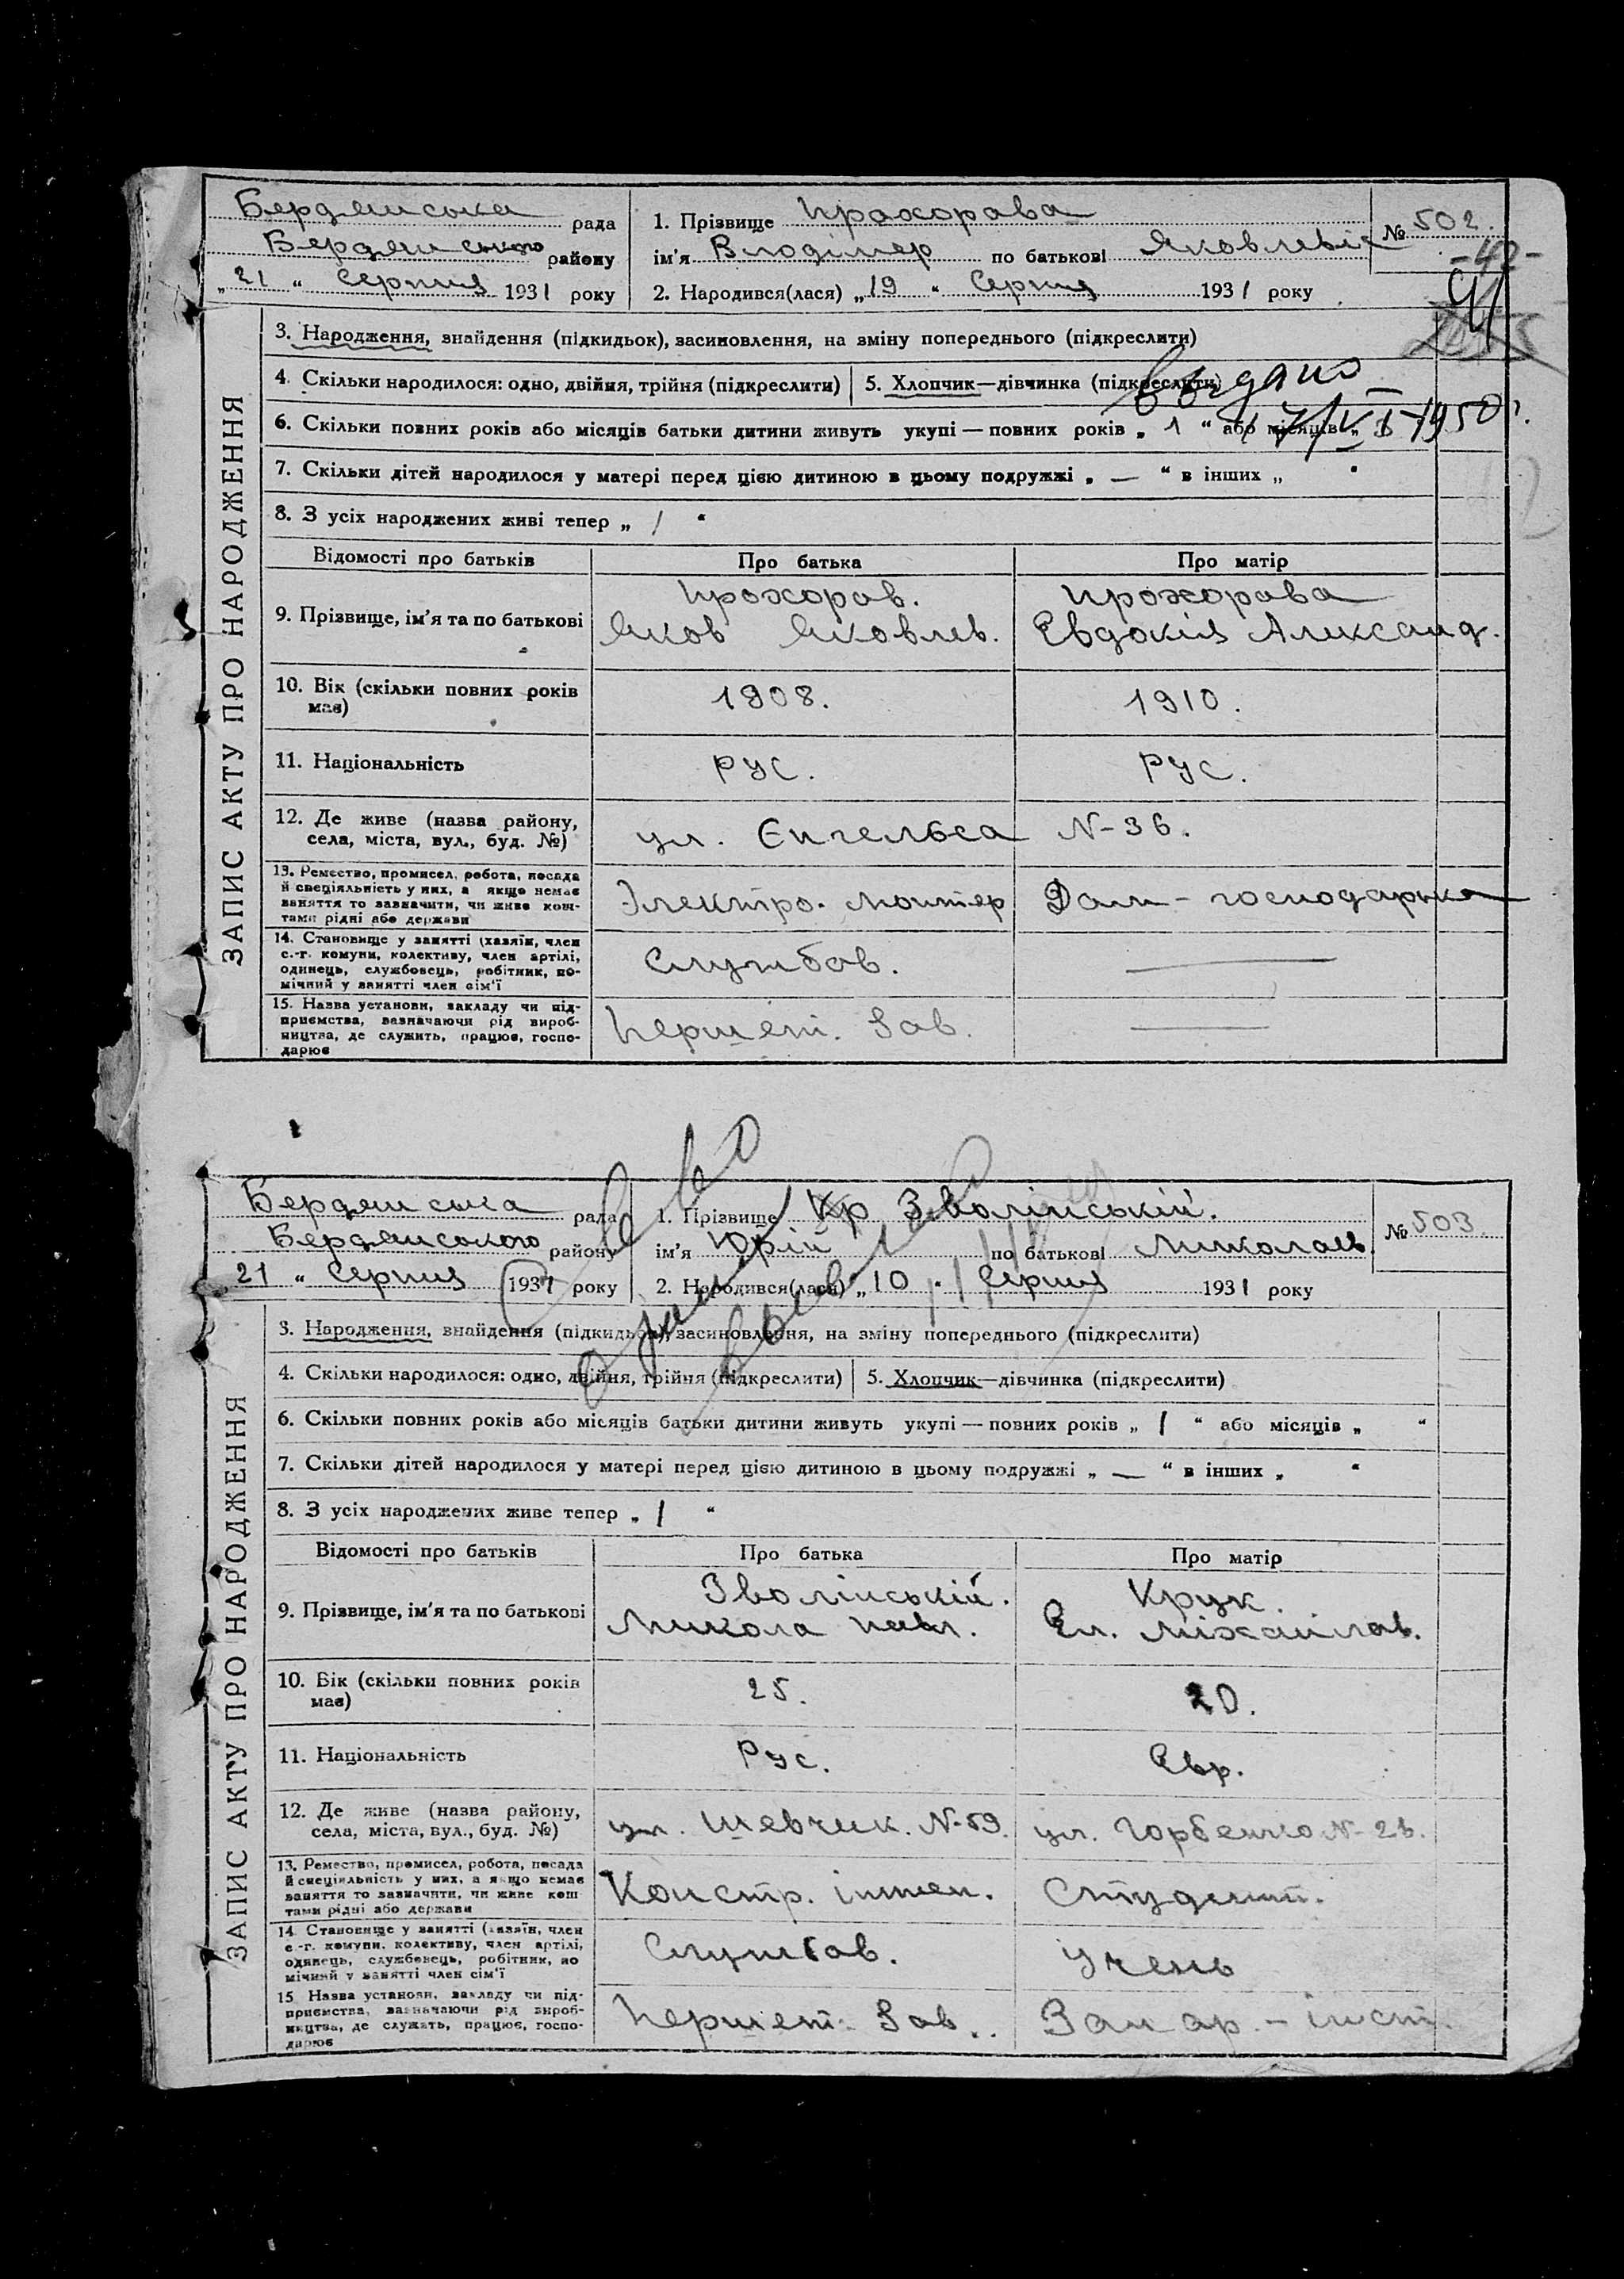 Бердянська рада
Бердянського району
„21" Серпня 1931 року
1. Прізвище Прохорава
ім'я Владімер по батькові Яковлевіч
2. Народився(лася) „19" Серпня 1931 року
№ 502.
-42-
ЗАПИС АКТУ ПРО НАРОДЖЕННЯ
3. Народження, знайдення (підкидьок), засиновлення, на зміну попереднього (підкреслити)
4. Скільки народилося: одно, двійня, трійня (підкреслити) 5. Хлопчик—дівчинка (підкреслити)
Выдано
6. Скільки повних років або місяців батьки дитини живуть укупі — повних років „ 1 " або місяців „
1950 г.
7. Скільки дітей народилося у матері перед цією дитиною в цьому подружжі „ — " в інших „ "
8. З усіх народжених живі тепер „ 1 "
Відомості про батьків Про батька Про матір
9. Прізвище, ім'я та по батькові
Прохоров. Прохорава
Яков Яковлев. Евдокія Александ.
10. Вік (скільки повних років має) 1908. 1910.
11. Національність рус. рус.
12. Де живе (назва району,
села, міста, вул., буд. №) ул. Енгельса N-36.
13. Ремество, промисел, робота, посада
й спеціяльність у них, а якщо немає
заняття то зазначити, чи живе кош-
тами рідні або держави
Электро. монтер Дом-господарька
14. Становище у занятті (хазяїн, член
с.-г. комуни, колективу, член артілі,
одинець, службовець, робітник, по-
мічний у занятті член сім'ї
Службов. —
15. Назва установи, закладу чи під-
приємства, зазначаючи рід вироб-
ництва, де служить, працює, госпо-
дарює
Першет. Зав. —
Бердянська рада
Бердянського району
21 " Серпня 1931 року
1. Прізвище Кр Зволінській.
ім'я Юрій по батькові Миколаєв.
2. Народився(лася) „10 " Серпня 1931 року
№ 503.
ЗАПИС АКТУ ПРО НАРОДЖЕННЯ
3. Народження, знайдення (підкидьок), засиновлення, на зміну попереднього (підкреслити)
4. Скільки народилося: одно, двійня, трійня (підкреслити) 5. Хлопчик—дівчинка (підкреслити)
6. Скільки повних років або місяців батьки дитини живуть укупі — повних років „ 1 " або місяців „ "
7. Скільки дітей народилося у матері перед цією дитиною в цьому подружжі „ — " в інших „ "
8. З усіх народжених живе тепер „ 1 "
Відомості про батьків Про батька Про матір
9. Прізвище, ім'я та по батькові
Зволінській. Крук.
Микола Павл. Ел. Міхайлов.
10. Вік (скільки повних років має) 25. 20.
11. Національність Рус. Евр.
12. Де живе (назва району,
села, міста, вул., буд. №) ул. Шевчик. N-59. ул. Горбенко N-2в.
13. Ремество, промисел, робота, посада
й спеціяльність у них, а якщо немає
заняття то зазначити, чи живе кош
тами рідні або держави
Констр. інжен. Студент.
14. Становище у занятті (хазяїн, член
с.-г. комуни, колективу, член артілі,
одинець, службовець, робітник, по
мічний у занятті член сім'ї
Службов. Учень
15. Назва установи, закладу чи під-
приємства, зазначаючи рід вироб-
ництва, де служать, працює, госпо-
дарює
Першет. Зав.. інст.